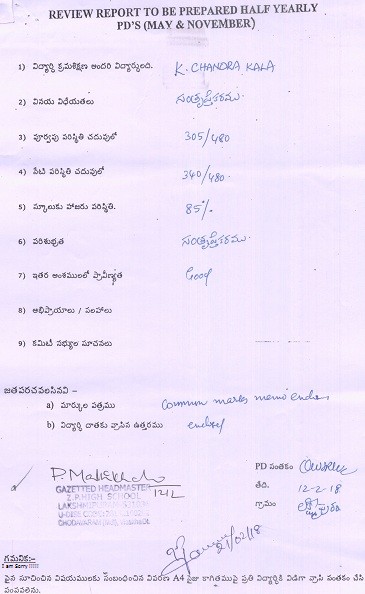 REVIEW REPORT TO BE PREPARED HALF YEARLY
PD'S (MAY & NOVEMBER)
1) విద్యార్థి క్రమశిక్షణ అందరి విద్యార్థులది. K. CHANDRA KALA
2) వినయ విధేయతలు సంతృప్తికరము.
3) పూర్వపు పరిస్థితి చదువులో 305/480
4) నేటి పరిస్థితి చదువులో 340/480.
5) స్కూలుకు హాజరు పరిస్థితి. 85%.
6) పరిశుభ్రత సంతృప్తికరము.
7) ఇతర అంశములలో ప్రావీణ్యత Good
8) అభిప్రాయాలు / సలహాలు
9) కమిటీ సభ్యుల సూచనలు
జతపరచవలసినవి –
a) మార్కుల పత్రము Common marks memo
b) విద్యార్థి దాతకు వ్రాసిన ఉత్తరము
PD సంతకం
GAZETTED HEADMASTER 12/2
Z.P. HIGH SCHOOL
తేది. 12-2-18
గ్రామం
21/02/18
గమనిక:–
I am Sorry !!!!!
పైన సూచించిన విషయములకు సంబంధించిన వివరణ A4 సైజు కాగితముపై ప్రతి విద్యార్థికి విడిగా వ్రాసి సంతకం చేసి
పంపవలెను.